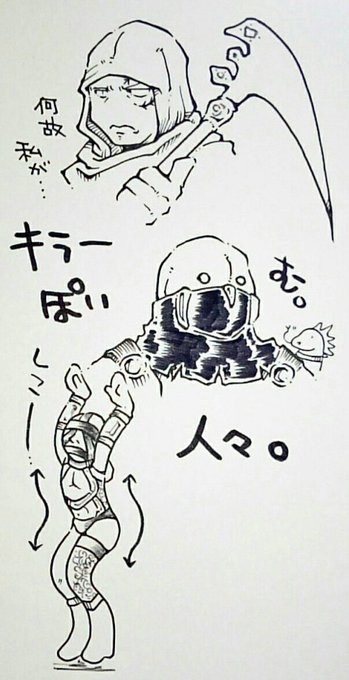 何故
私が…
キラー
ぽい
む。
しこー…
人々。